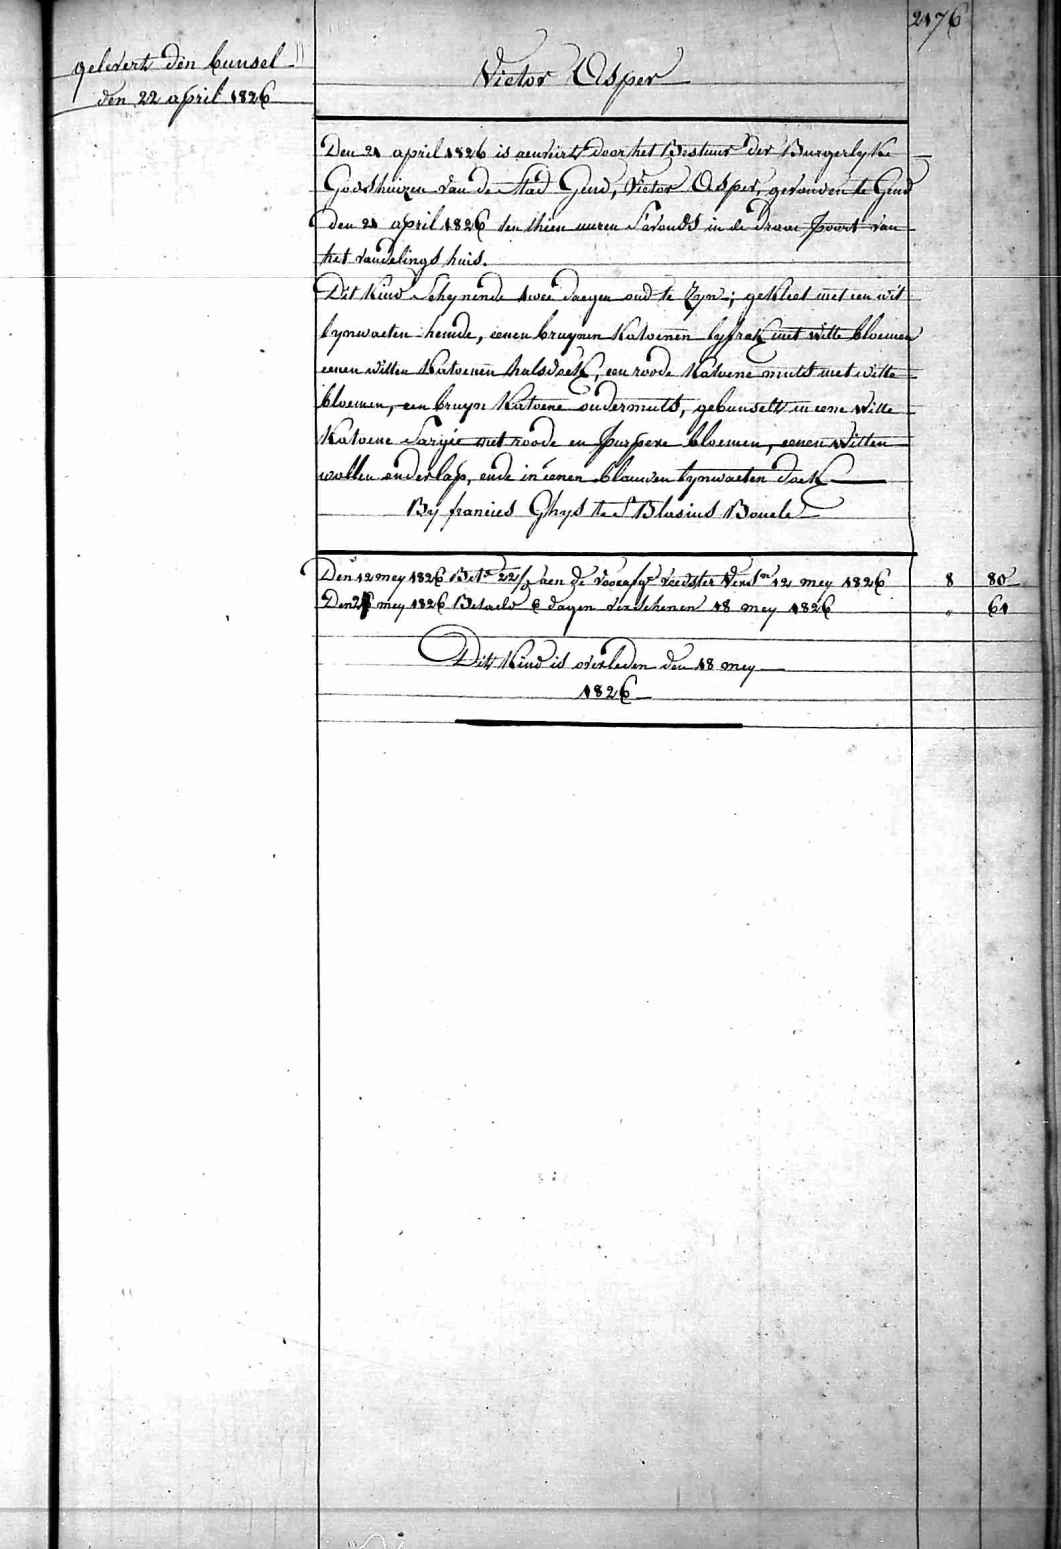 2176
gelevert den bunsel
den 22 april 1826
Victor Asper
Den 21 april 1826 is aenveirt door het Bestuur der Burgerlyke
Godshuizen van de Stad Gend, Victor Asper, gevonden te Gend
den 21 april 1826 ten thien uuren S'avonds in de Draai poort van
het vondelings huis.
Dit Kind Schynende twee daegen oud te Zyn; gekleet met een wit
lynwaeten hemde, eenen bruynen Katoenen lyfrak met witte bloemen
eenen witten Katoenen halsdoek, een roode Katoene muts met witte
bloemen, een bruyn Katoene ondermuts, gebunselt in eene Witte
Katoene Sargie met roode en purpere bloemen, eenen Witten
wollen onderlap, ende in eenen blauwen lynwaeten doek
By francies Ghys te St Blasius Bouele
Den 12 mey 1826 Bet. 22/ aen de voedster 12 mey 1826 8 80
Den mey 1826 Betaeld 6 dagen verschenen 18 mey 1826 " 61
Dit Kind is overleden den 18 mey
1826